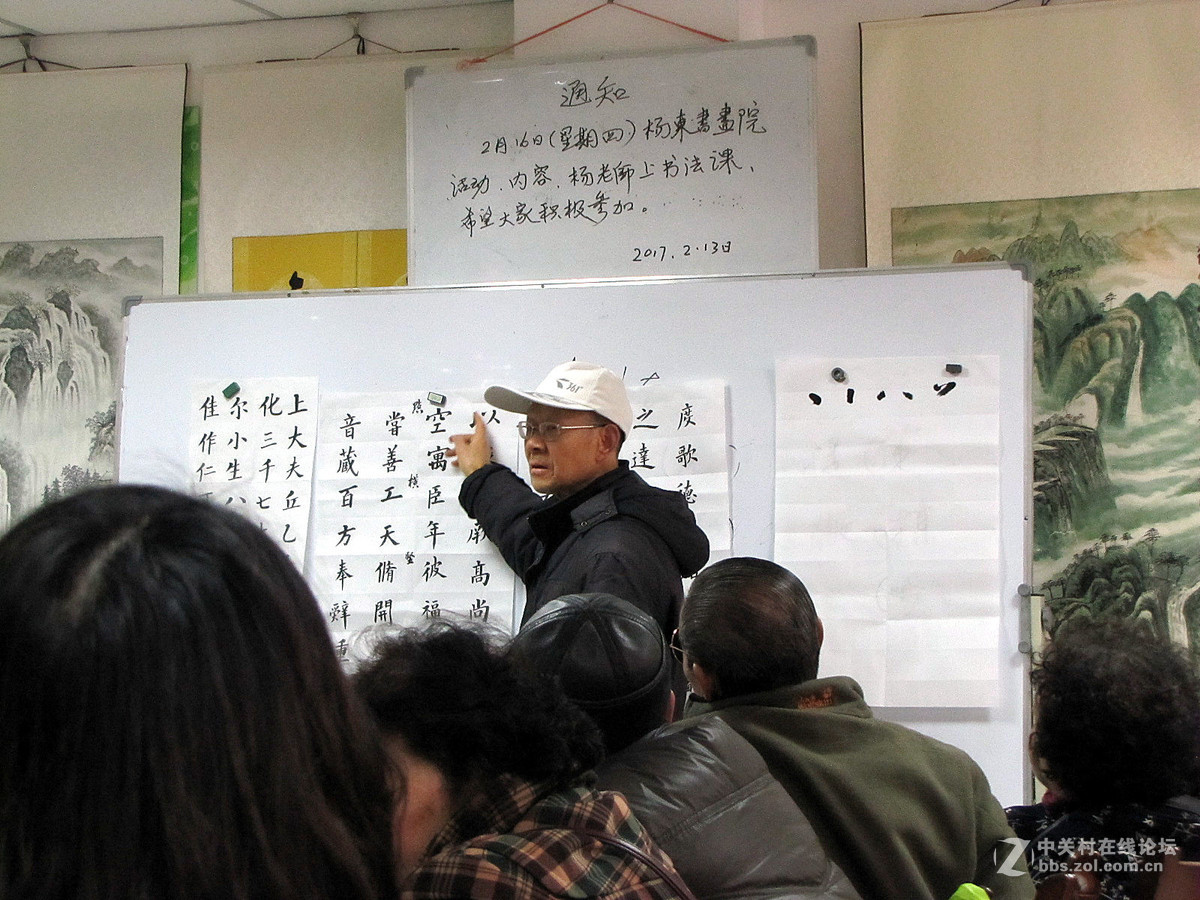 通知
2月16日(星期四)杨東書畫院
活动、内容、杨老師上书法课、
希望大家积极参加。
2017.2.13日
上大夫丘乙
化三千七
尔小生八
佳作仁
以
高尚
空寓臣年彼福
嘗善工天脩開
音蔵百方奉辤重
横
竖
庆歌德
之達
中关村在线论坛
bbs.zol.com.cn